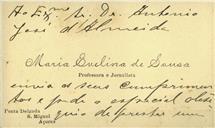 Ao Exmo Sr. Dr. Antonio
José d'Almeida
Maria Evelina de Sousa
Professora e Jornalista
envia os seus cumprimen
tos e pede o especial obse
quio de prestar um
Ponta Delgada
S. Miguel
Açores